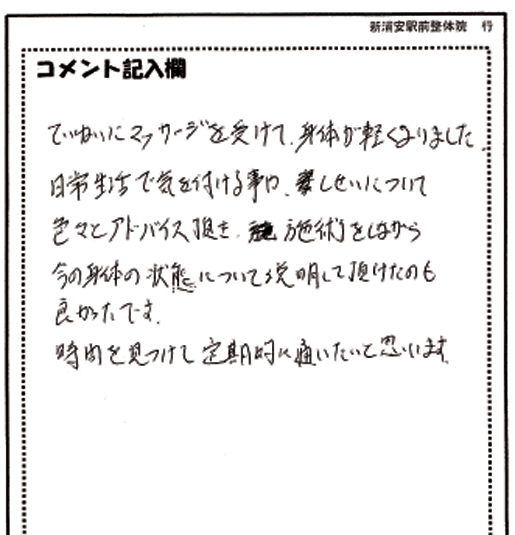 新浦安駅前整体院 行
コメント記入欄
ていねいにマッサージを受けて、身体が軽くなりました。
日常生活で気を付ける事や、楽しせいについて
色々とアドバイス頂き、施術をしながら
今の身体の状態について説明して頂けたのも
良かったです。
時間を見つけて定期的に通いたいと思います。